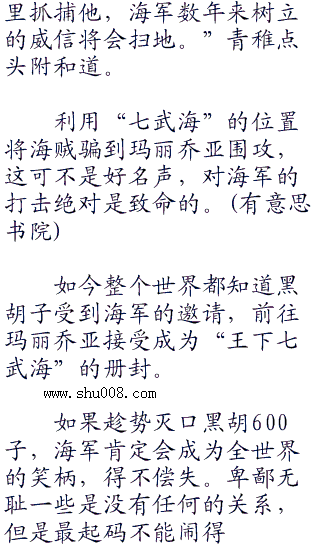 里抓捕他，海军数年来树立
的威信将会扫地。”青稚点
头附和道。
利用“七武海”的位置
将海贼骗到玛丽乔亚围攻，
这可不是好名声，对海军的
打击绝对是致命的。(有意思
书院)
如今整个世界都知道黑
胡子受到海军的邀请，前往
玛丽乔亚接受成为“王下七
武海”的册封。
www.shu008.com
如果趁势灭口黑胡600
子，海军肯定会成为全世界
的笑柄，得不偿失。卑鄙无
耻一些是没有任何的关系，
但是最起码不能闹得